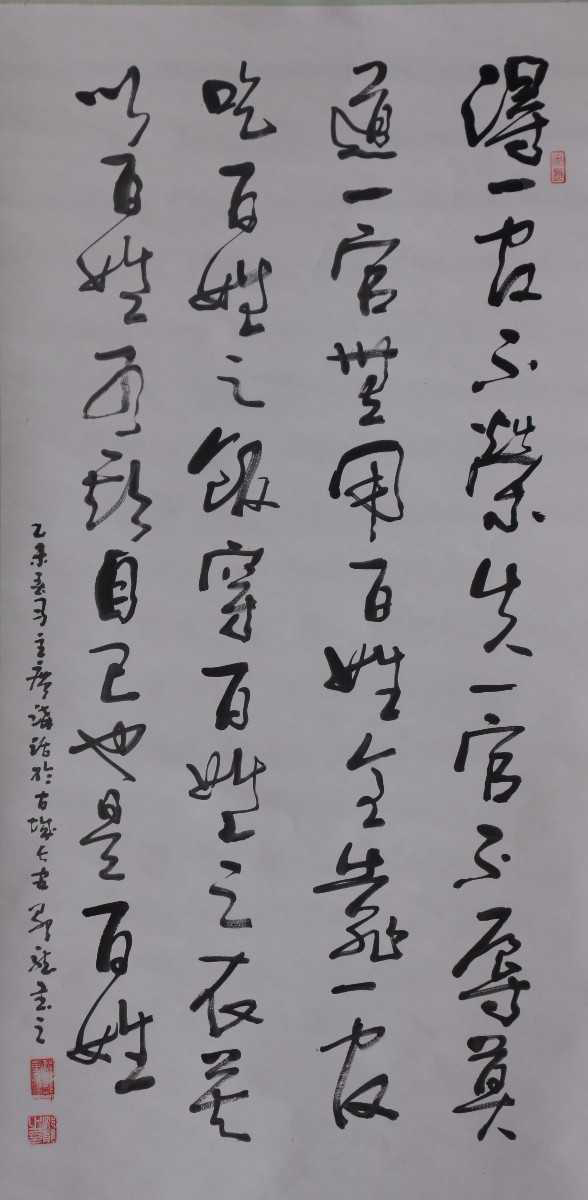 得一官不榮失一官不辱莫
道一官無用百姓全靠一官
吃百姓之飯穿百姓之衣莫
以百姓可欺自己也是百姓
乙未春习主席講話於古城書之